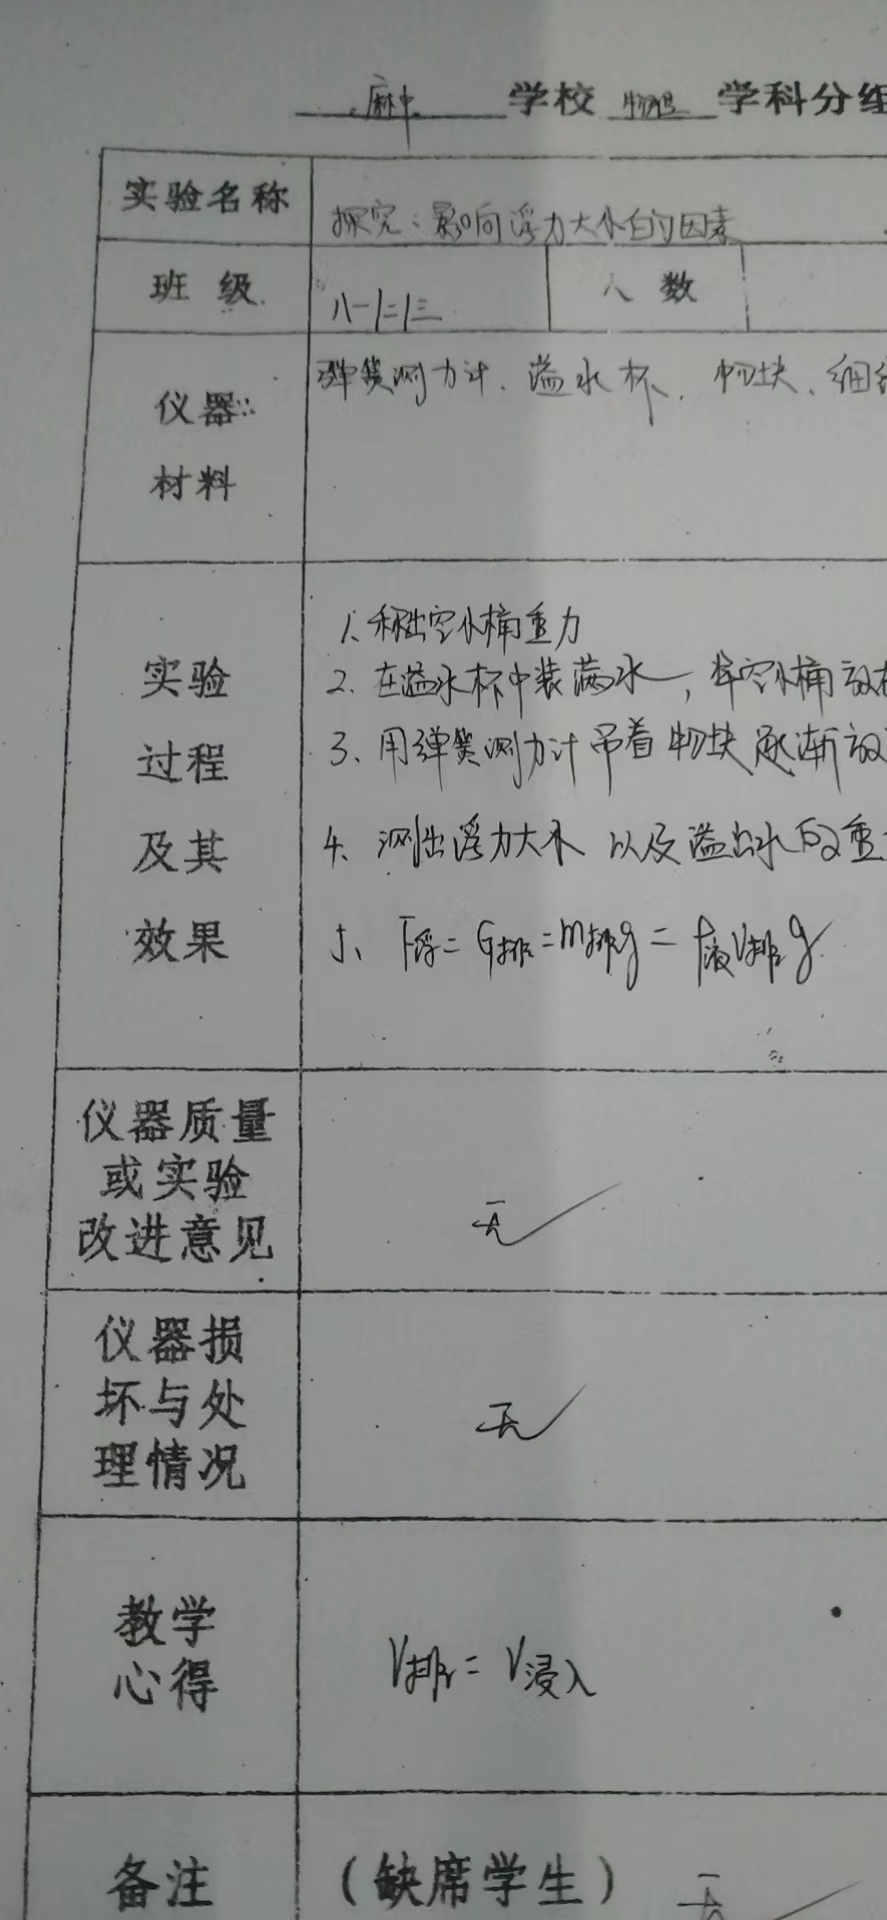 麻中 学校 物理 学科分组
实验名称 探究:影响浮力大小的因素
班级 八一 二 三 人数
仪器 弹簧测力计、溢水杯、物块、细
材料
1、称出空小桶重力
实验 2、在溢水杯中装满水,将空小桶放在
过程 3、用弹簧测力计吊着物块逐渐放
及其 4、测出浮力大小以及溢出水的重
效果 5、F浮=G排=m排g=ρ液V排g
仪器质量
或实验
改进意见 无
仪器损
坏与处 无
理情况
教学
心得 V排=V浸入
备注 (缺席学生) 无